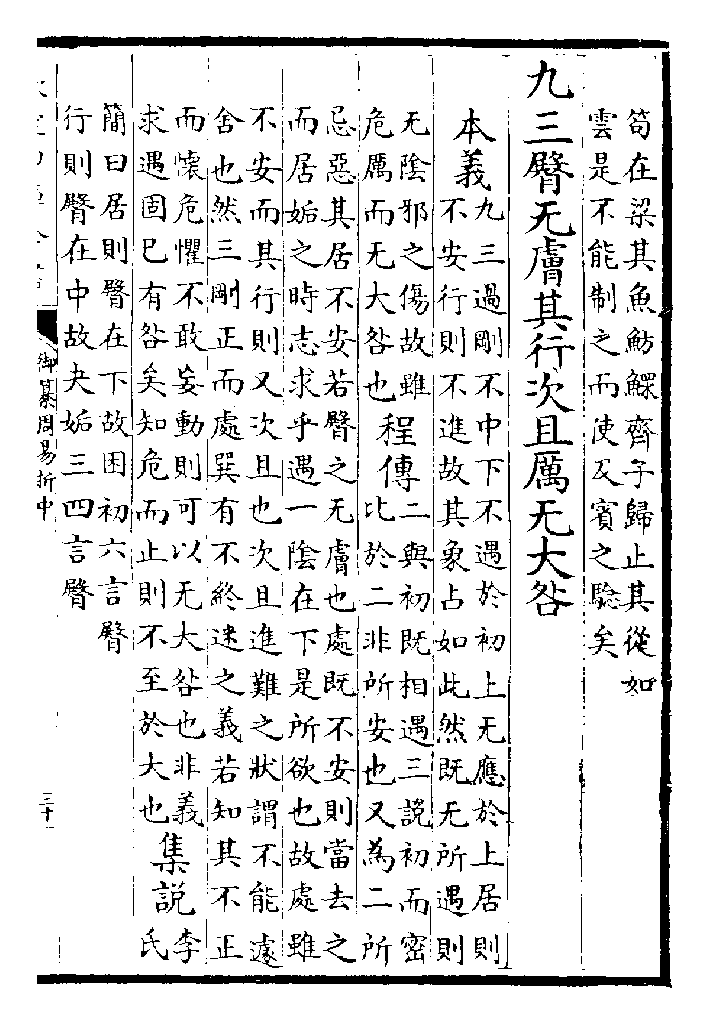 笱在梁其魚魴鰥齊子歸止其從如
雲是不能制之而使及賓之驗矣
九三臀无膚其行次且厲无大咎
本義
九三過剛不中下不遇於初上无應於上居則
不安行則不進故其象占如此然既无所遇則
无陰邪之傷故雖
危厲而无大咎也
程傳
二與初既相遇三說初而密
比於二非所安也又為二所
忌惡其居不安若臀之无膚也處既不安則當去之
而居姤之時志求乎遇一陰在下是所欲也故處雖
不安而其行則又次且也次且進難之狀謂不能遽
舍也然三剛正而處巽有不終迷之義若知其不正
而懷危懼不敢妄動則可以无大咎也非義
求遇固已有咎矣知危而止則不至於大也
集說
李
氏
簡曰居則臀在下故困初六言臀
行則臀在中故夬姤三四言臀
御纂周易折中